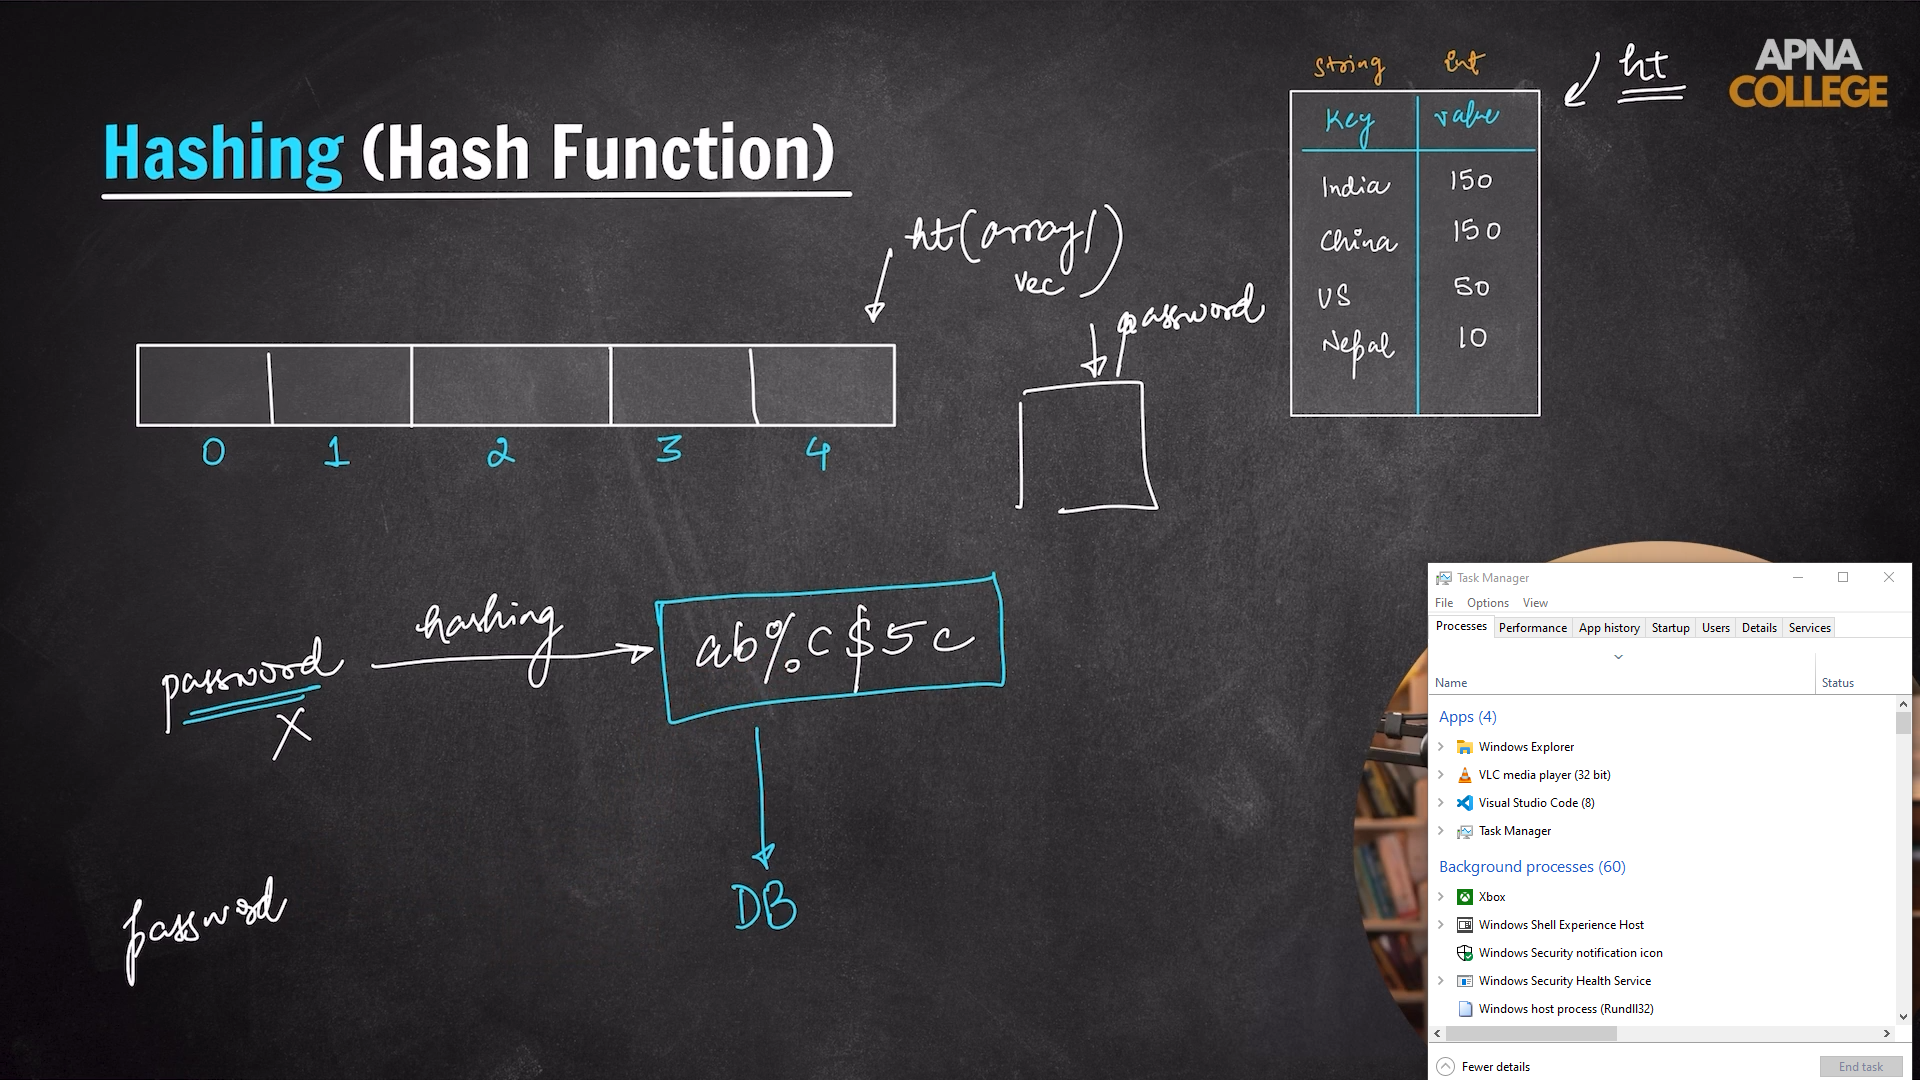 APNA
COLLEGE
Hashing (Hash Function)
string int
ht
Key value
India 150
China 150
US 50
Nepal 10
ht(array/
vec)
password
0 1 2 3 4
password
X
hashing
ab%c$5c
DB
password
Task Manager
File Options View
Processes Performance App history Startup Users Details Services
Name Status
Apps (4)
Windows Explorer
VLC media player (32 bit)
Visual Studio Code (8)
Task Manager
Background processes (60)
Xbox
Windows Shell Experience Host
Windows Security notification icon
Windows Security Health Service
Windows host process (Rundll32)
Fewer details
End task